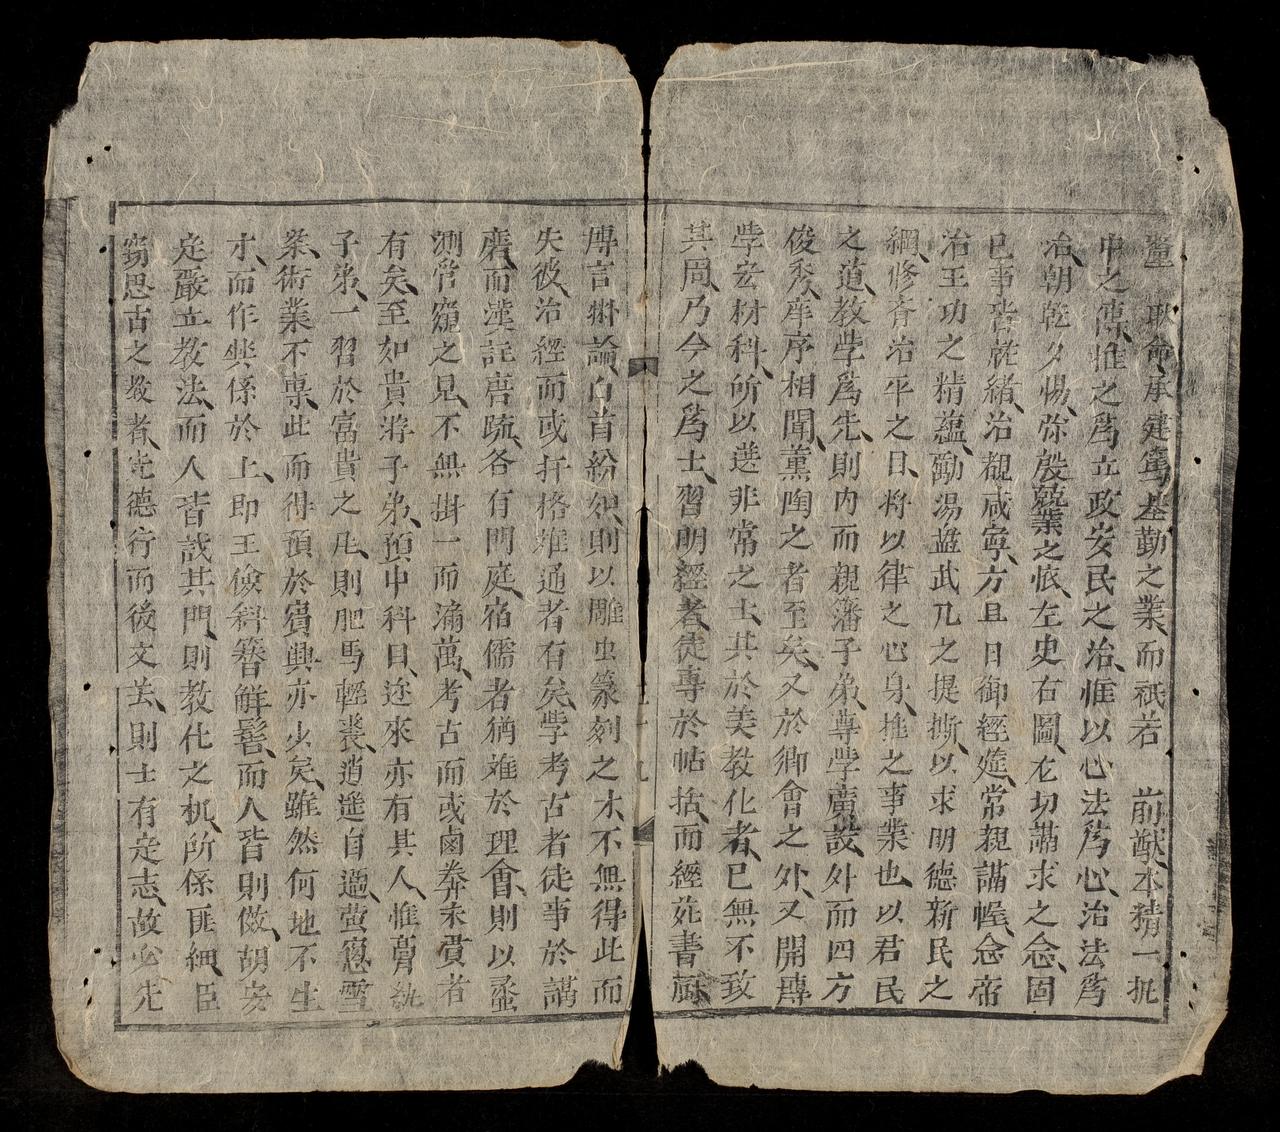 釐 耿命承建篤基勤之業而祇若 前猷本精一執
中之傳惟之爲立政安民之治惟以心法爲心治法爲
治朝乾夕惕弥殷兢業之懷左史右圖尤切講求之念固
已事啻就緒治覩咸寧方且日御經筵常親講幄念帝
治王功之精蘊勵湯盤武几之提撕以求明德新民之
綱修齊治平之日将以律之心身推之事業也以君民
之道教学爲先則内而親藩子弟尊学廣設外而四方
俊秀庠序相聞薰陶之者至矣又於鄉會之外又開專
学宏材科所以選非常之士其於美教化者已無不致
其周乃今之爲士習明經者徒專於帖括而經苑書厨
博言辨論白首紛如則以雕虫篆刻之末不無得此而
失彼治經而或扞格难通者有矣学考古者徒事於講
磨而漢註唐疏各有門庭宿儒者犹难於理會則以蠡
測管窺之見不無掛一而漏萬考古而或鹵莽未贯者
有矣至如貴游子弟預中科目近來亦有其人惟膏紈
子弟一習於富貴之凡則肥馬輕裘逍遥自適萤窓雪
案術業不專此而得預於賓興亦少矣雖然何地不生
才而作興係於上即王儉科簪解髻而人皆則倣胡安
定嚴立教法而人皆誠其門則教化之机所係匪細臣
窃思古之教者先德行而後文芸則士有定志故必先